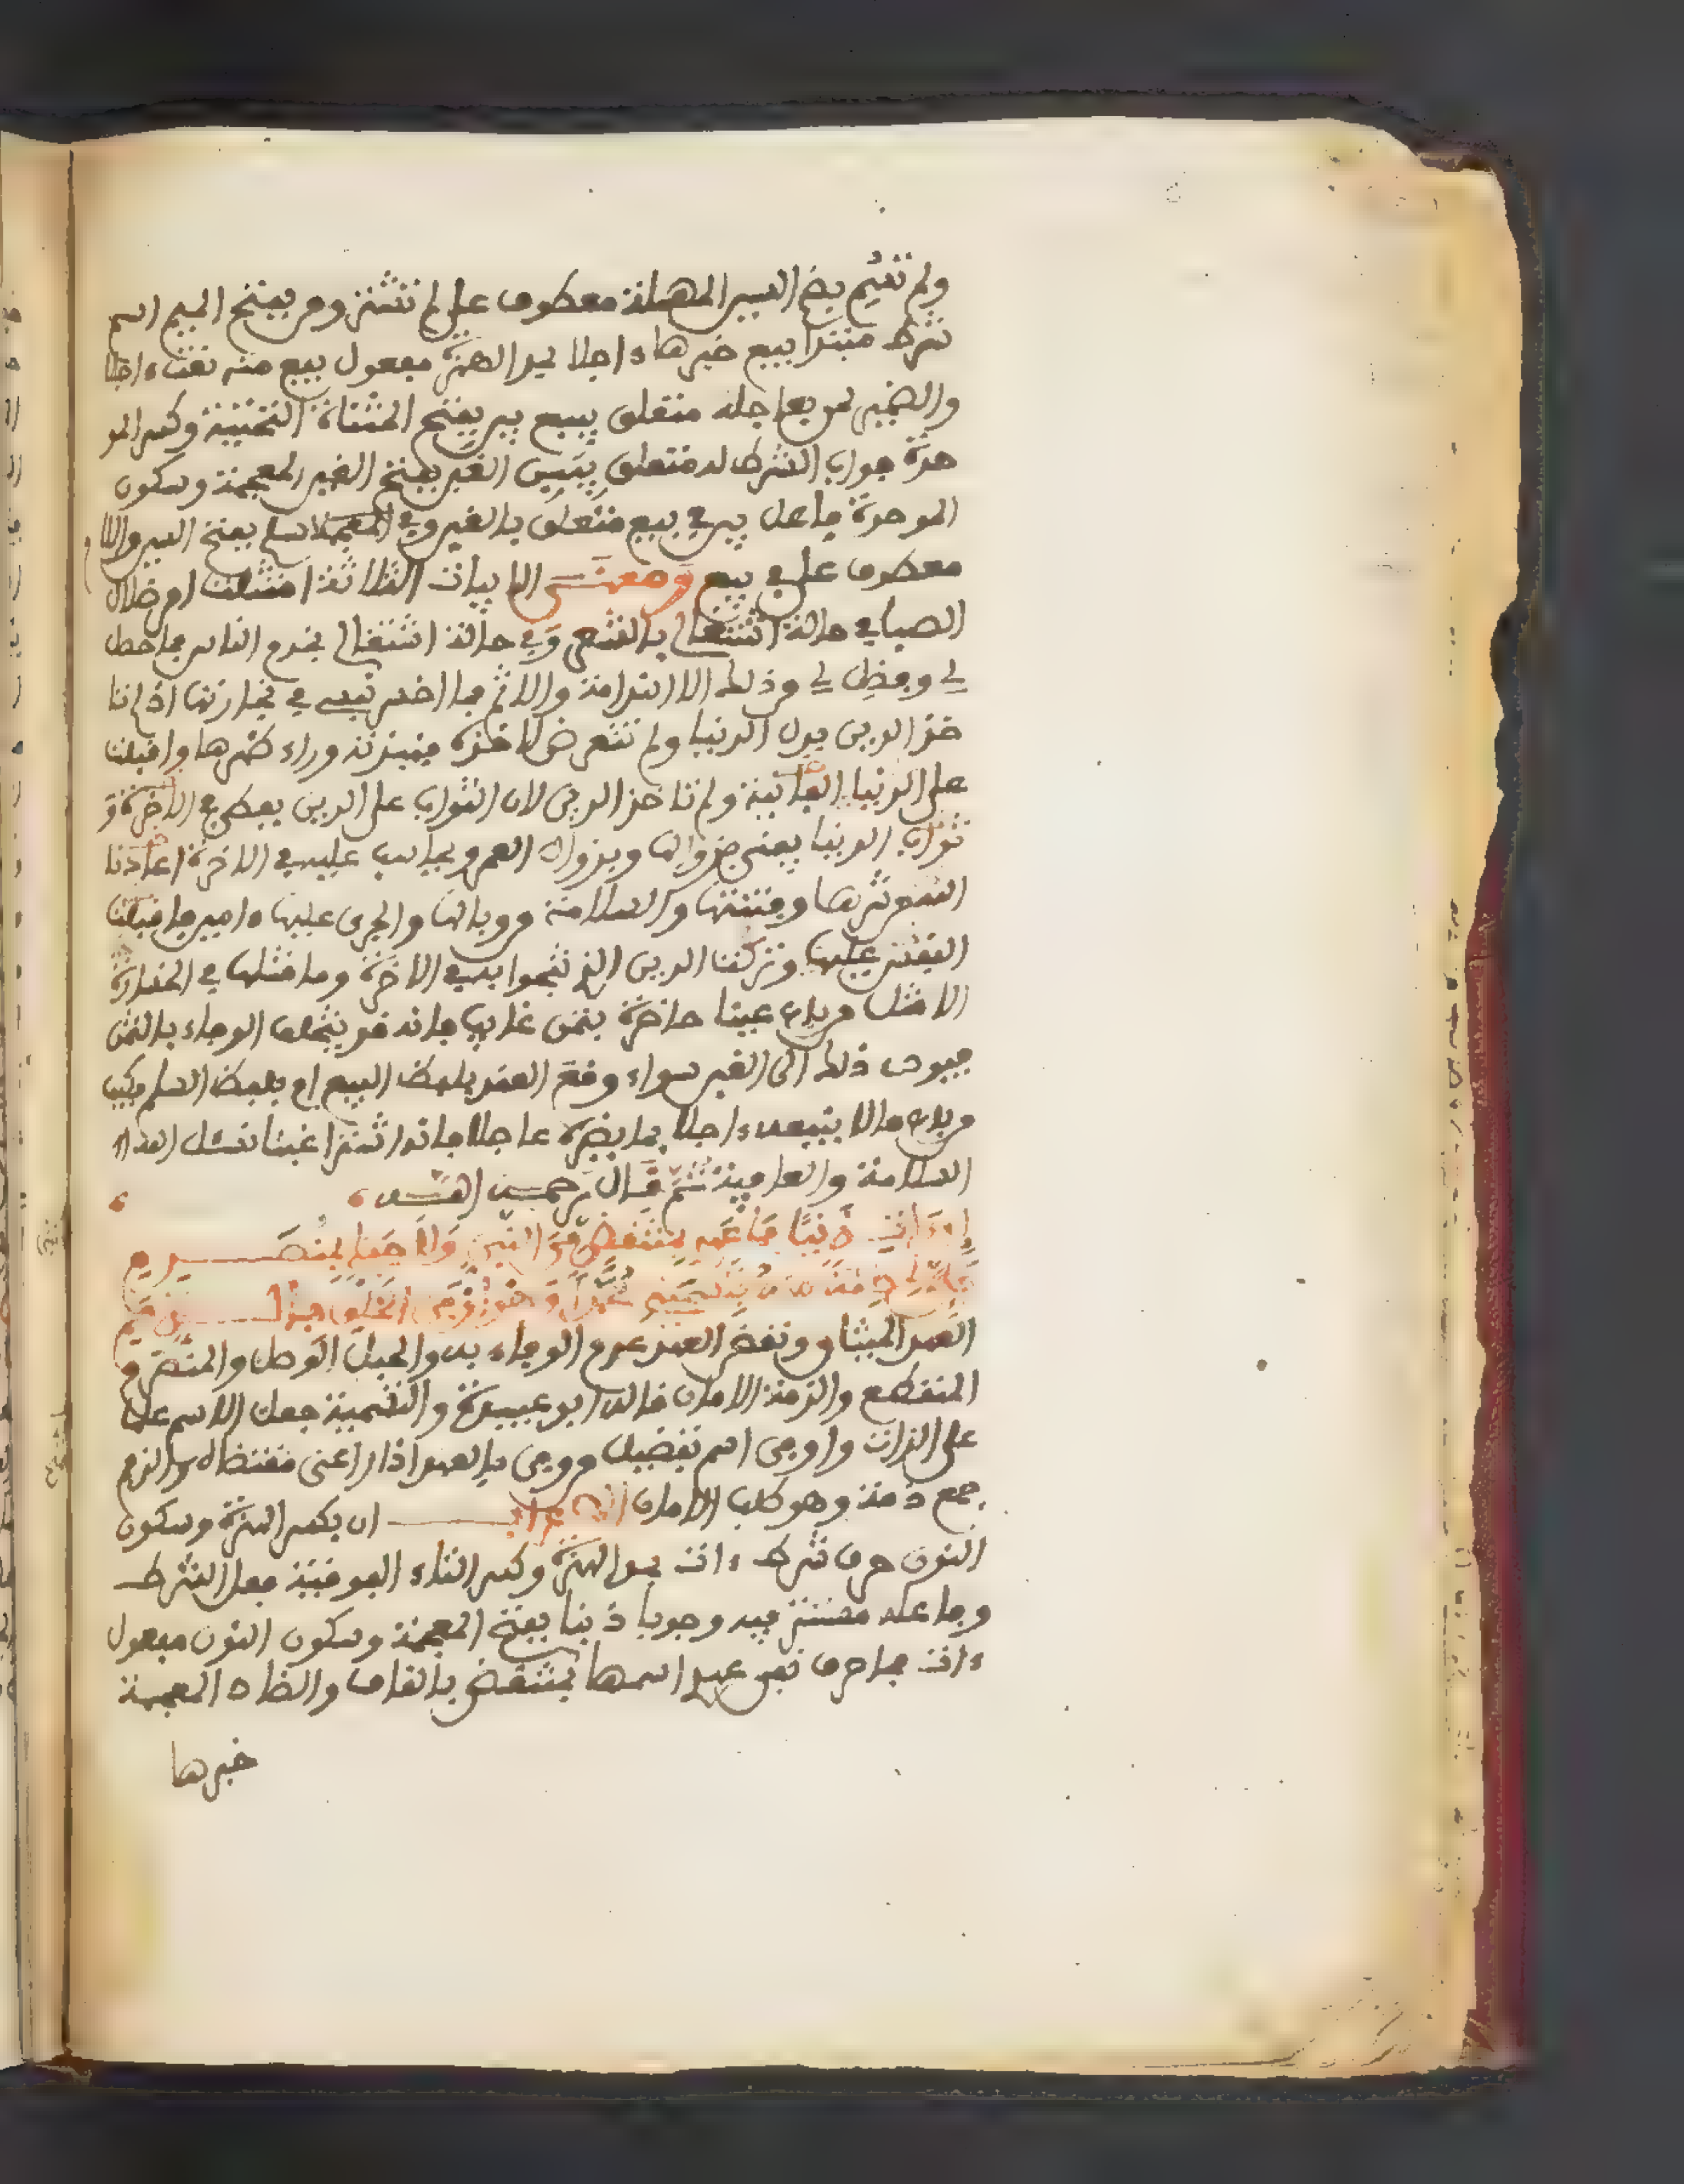 ولم تسم بضم السين المهملة معطوف على لم تشتر ومن بفتح الميم اسم
شرط مبتدا يبع خبرها ءاجلا بمد الهمزة مفعول يبع منه نعت ءاجلا
والضمير لمن بعاجله متعلق بيبع يبن بفتح المثناة التحتية وكسر المو
حدة جواب الشرط له متعلق بيبن الغبن بفتح الغين المعجمة وسكون
الموحدة فاعل يبن في بيع متعلق بالغبن وفي سلم بفتح السين واللام
معطوف على في بيع ومعنى الابيات الثلاثة امتثلت امر ضلال
الصبا في حالة اشتغالي بالشعر وفي حالة اشتغالي بخدم الناس فما حصل
لي وفضل لي من ذلك الا الندامة والاثم فما اخسر نفسي في تجارتها اذ لم تا
خذ الدين بدل الدنيا ولم تتعرض للاخرة فنبذته وراء ظهرها واقبلت
على الدنيا الفانية ولم تاخذ الدين لان الثواب على الدين يعطى في الاخرة و
ثواب الدنيا يفنى بزوالها وبزوال العمر ويحاسب عليه في الاخرة اعاذنا
الله من شرها وفتنتها والسلامة من وبالها والجري عليها ءامين فاقبلت
النفس عليها وتركت الدين الذي تنجوا به في الاخرة وما مثلها في الخسارة
الا مثل من باع عينا حاضرة بثمن غايب فانه قد يتخلف الوفاء بالثمن
فيودي ذلك الى الغبن سواء وقع العقد بلفظ البيع او بلفظ السلم فكيف
من باع مالا ينفعه ءاجلا بما يضره عاجلا فانه اشد غبنا نسئل الله
السلامة والعافية ثم قال رحمه الله
إن ءات ذنبا فما عهدي بمنتقض من النبي ولا حبلي بمنصرم
فإن لي ذمة منه بتسميتي محمدا وهو أوفى الخلق بالذمم
العهد الميثاق ونقض العهد عدم الوفاء به والحبل الوصل والمنصرم
المنقطع والذمة الامان قاله ابو عبيدة والتسمية جعل الاسم علما
على الذات واوفى اسم تفضيل من وفى بالعهد اذا راعى مقتضاه والذمم
جمع ذمة وهو كلب الامان الاعراب ان بكسر الهمزة وسكون
النون حرف شرط ءات بمد الهمزة وكسر التاء الفوقية فعل الشرط
وفاعله مستتر فيه وجوبا ذنبا بفتح المعجمة وسكون النون مفعول
ءات فما حرف نفي عهدي اسمها بمنتقض بالقاف والضاد المعجمة
خبرها